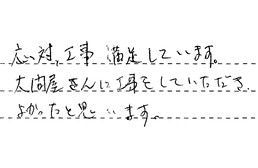 応対,工事 満足しています。
大問屋さんに工事をしていただき、
よかったと思います。